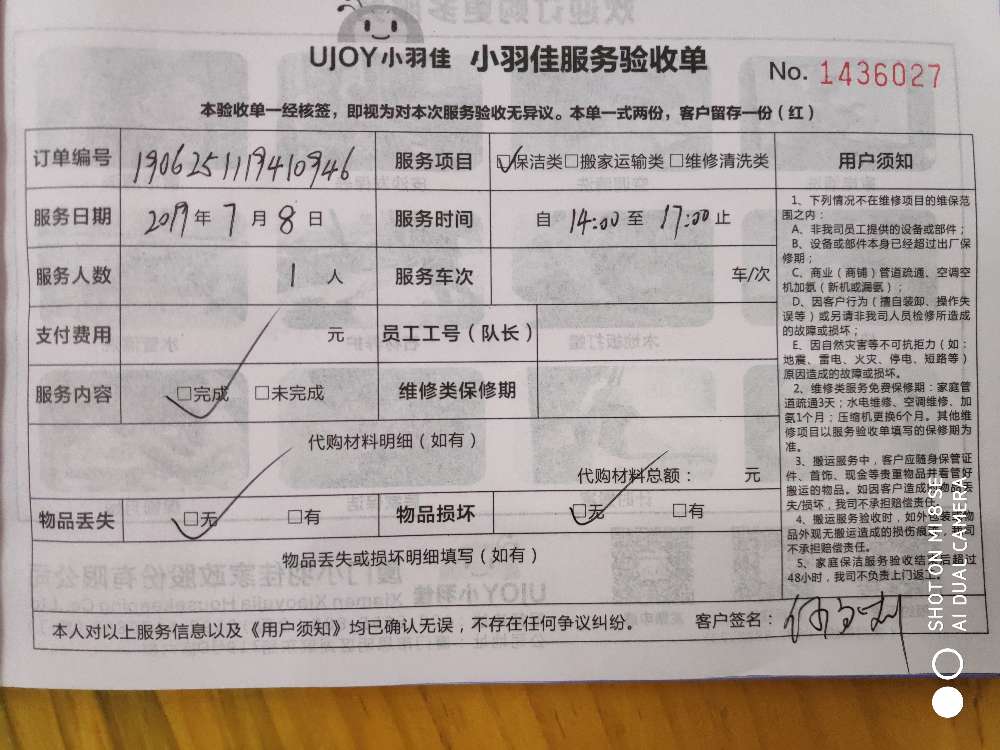 UJOY小羽佳 小羽佳服务验收单
No. 1436027
本验收单一经核签，即视为对本次服务验收无异议。本单一式两份，客户留存一份（红）
订单编号 190625111941094​6 服务项目 ☑保洁类□搬家运输类□维修清洗类
服务日期 2019年7月8日 服务时间 自14:00至17:00止
服务人数 1人 服务车次 车/次
支付费用 元 员工工号（队长）
服务内容 ☑完成 □未完成 维修类保修期
代购材料明细（如有）
代购材料总额： 元
物品丢失 ☑无 □有 物品损坏 ☑无 □有
物品丢失或损坏明细填写（如有）
本人对以上服务信息以及《用户须知》均已确认无误，不存在任何争议纠纷。 客户签名：
用户须知
1、下列情况不在维修项目的维保范
围之内：
A、非我司员工提供的设备或部件；
B、设备或部件本身已经超过出厂保
修期；
C、商业（商铺）管道疏通、空调空
机加氨（新机或漏氨）；
D、因客户行为（擅自装卸、操作失
误等）或另请非我司人员检修所造成
的故障或损坏；
E、因自然灾害等不可抗拒力（如：
地震、雷电、火灾、停电、短路等）
原因造成的故障或损坏。
2、维修类服务免费保修期：家庭管
道疏通3天；水电维修、空调维修、加
氨1个月；压缩机更换6个月。其他维
修项目以服务验收单填写的保修期为
准。
3、搬运服务中，客户应随身保管证
件、首饰、现金等贵重物品并看管好
搬运的物品。如因客户造成的物品丢
失/损坏，我司不承担赔偿责任。
4、搬运服务验收时，如外包装或物
品外观无搬运造成的损伤痕迹，我司
不承担赔偿责任。
5、家庭保洁服务验收结束后超过
48小时，我司不负责上门返工。
SHOT ON MI 8 SE
AI DUAL CAMERA